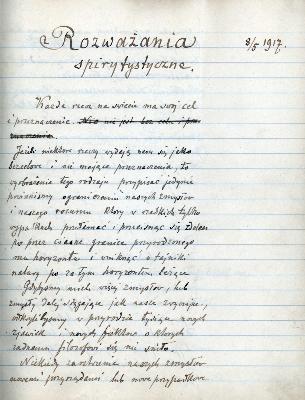 Rozważania 8/5 1917.
spirytystyczne.
Każda rzecz na świecie ma swój cel
i przeznaczenie. Nic nie jest bez celu i prze-
znaczenia.
Jeżeli niektóre rzeczy wydają nam się jako
bezcelowe i nie mające przeznaczenia, to
wyobrażenie tego rodzaju przypisać jedynie
powinniśmy ograniczoności naszych zmysłów
i naszego rozumu który w rzadkich tylko
wypadkach przełamać i przecisnąć się zdoła
po przez ciasne granice przyrodzonego
mu horyzontu i wniknąć w tajniki
natury po za tym horyzontem leżące
Gdybyśmy mieli więcej zmysłów, lub
zmysły dalej sięgające jak nasze zwyczajne,
odkrylibyśmy w przyrodzie tysiące nowych
zjawisk i nowych faktów o których
żadnemu filozofowi się nie śniło.
Niekiedy zaostrzenie naszych zmysłów
nowemi przyrządami lub nowe przypadkowe